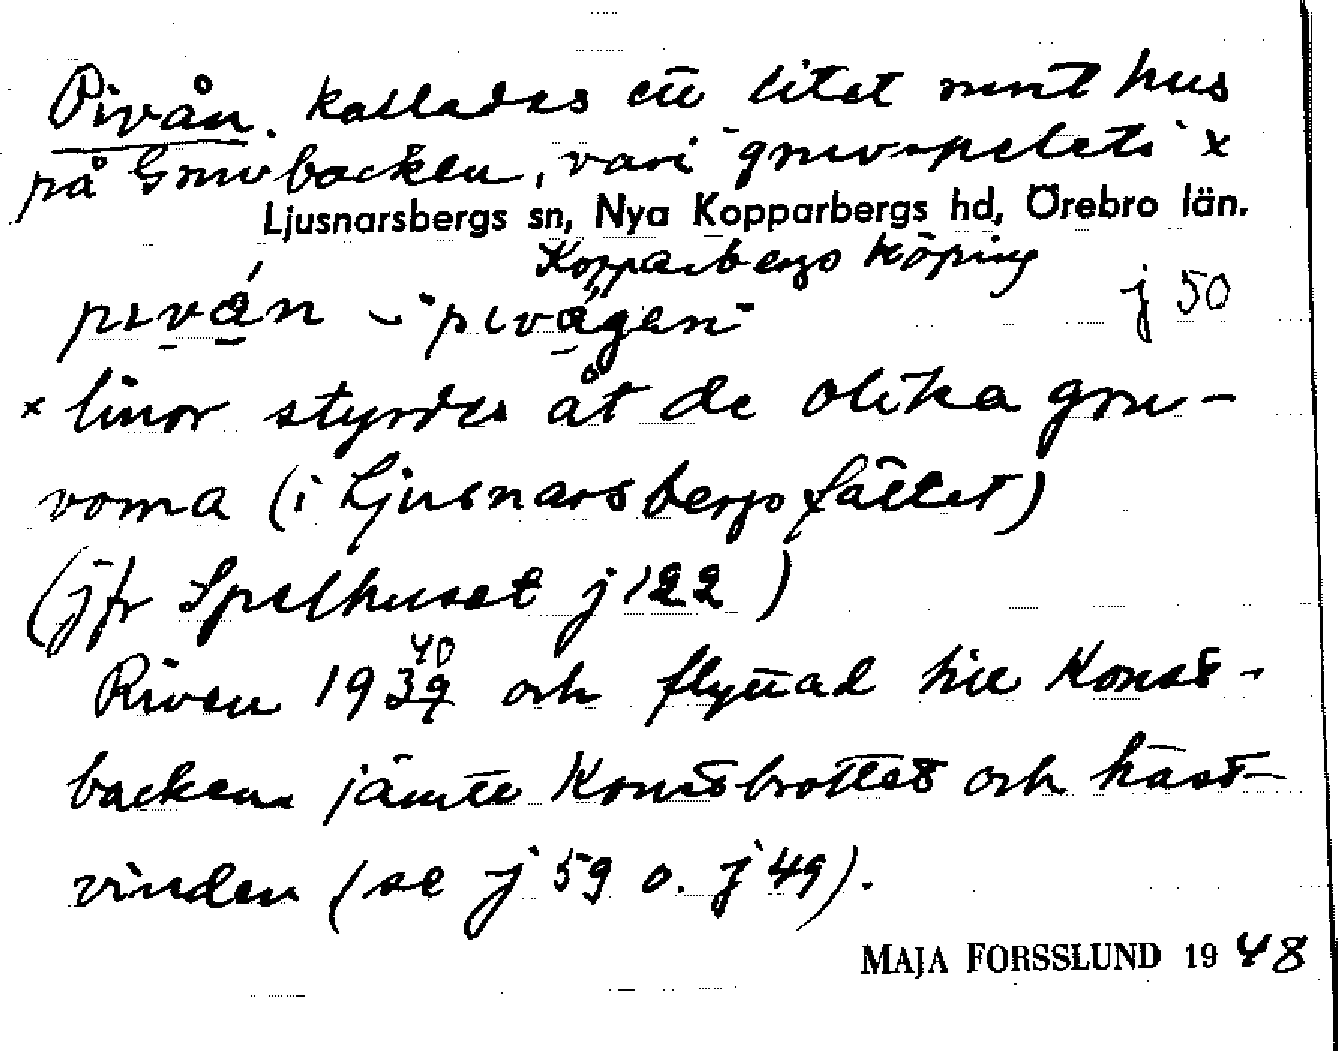 Pivån. kallades ett litet runt hus
på Gruvbacken, vari "gruvspelets" x
Ljusnarsbergs sn, Nya Kopparbergs hd, Örebro län.
Kopparbergs köping
pɩván - "pɩvágen"
j 50
x linor styrdes åt de olika gru-
vorna (i Ljusnarsbergsfältet)
(jfr Spelhuset j 122)
40
Riven 1939 och flyttad till Konst-
backen jämte Konstbrottet och häst-
vinden (se j 59 o. j 49).
MAJA FORSSLUND 1948